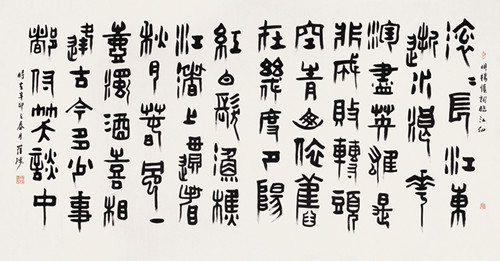 滾〻長江東
明楊慎詞臨江仙
逝水浪花
淘盡英雄是
非成敗轉頭
空青山依舊
在幾度夕陽
紅白髮漁樵
江渚上慣看
秋月春風一
壺濁酒喜相
逢古今多少事
都付笑談中
時在辛卯之春月